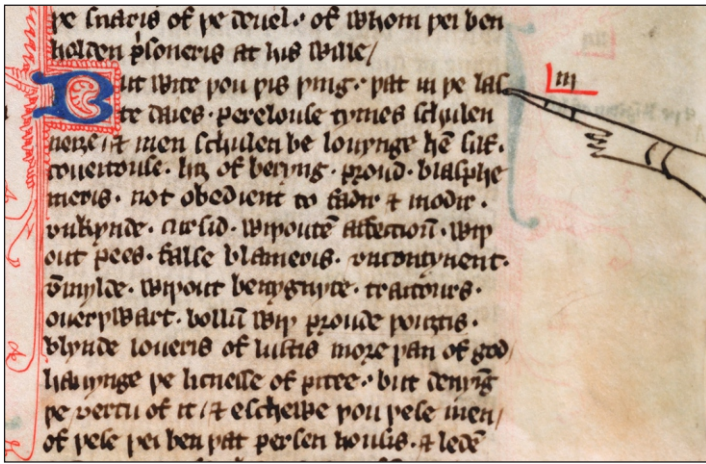 þe snaris of þe deuel· of whom þei ben
holden p̓soneris at his wille/
But wite þou þis þing· þat in þe las
iij
te daies· perelouse tymes schulen
neiȝe/ ⁊ men schulen be louynge hē silf·
coueitouse· hiȝ of beryng· proud· blasphe
meris· not obedient to fadir ⁊ modir·
vnkynde· cursid· wiþoutē affeccioū· wiþ
out pees· false blameris· vncontynent·
v̄mylde· wiþout benygnyte· traitours·
ouerþwart· bollū wiþ proude þouȝtis·
blynde loueris of lustis more þan of god/
hauynge þe licnesse of pitee·· but denyīg
þe vertu of it/ ⁊ eschewe þou þese men/
of þese þei ben þat persen housis· ⁊ ledē